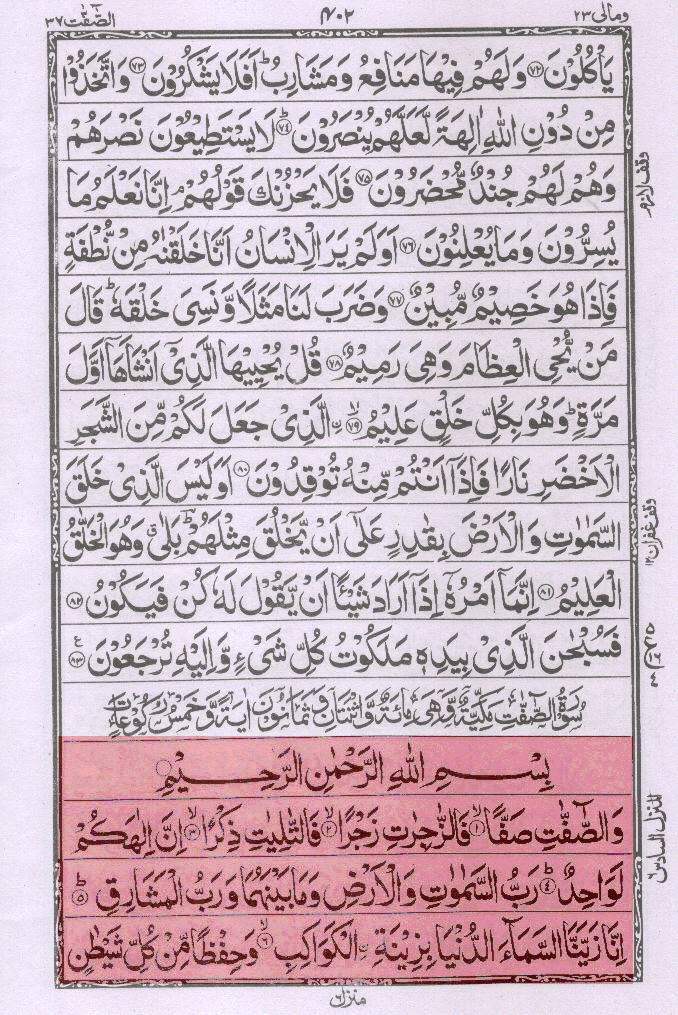 الصّٰٓفّٰت ٣٧
٤٠٢
ومالی ٢٣
يَاْكُلُوْنَ ﴿۷۲﴾ وَلَهُمْ فِيْهَا مَنَافِعُ وَمَشَارِبُ ؕ اَفَلَا يَشْكُرُوْنَ ﴿۷۳﴾ وَاتَّخَذُوْا
مِنْ دُوْنِ اللّٰهِ اٰلِهَةً لَّعَلَّهُمْ يُنْصَرُوْنَ ؕ﴿۷۴﴾ لَا يَسْتَطِيْعُوْنَ نَصْرَهُمْ
وَهُمْ لَهُمْ جُنْدٌ مُّحْضَرُوْنَ ﴿۷۵﴾ فَلَا يَحْزُنْكَ قَوْلُهُمْ ۘ اِنَّا نَعْلَمُ مَا
يُسِرُّوْنَ وَمَا يُعْلِنُوْنَ ﴿۷۶﴾ اَوَلَمْ يَرَ الْاِنْسَانُ اَنَّا خَلَقْنٰهُ مِنْ نُّطْفَةٍ
فَاِذَا هُوَ خَصِيْمٌ مُّبِيْنٌ ﴿۷۷﴾ وَضَرَبَ لَنَا مَثَلًا وَّنَسِیَ خَلْقَهٗ ؕ قَالَ
مَنْ يُّحْیِ الْعِظَامَ وَهِیَ رَمِيْمٌ ﴿۷۸﴾ قُلْ يُحْيِيْهَا الَّذِیْۤ اَنْشَاَهَاۤ اَوَّلَ
مَرَّةٍ ؕ وَهُوَ بِكُلِّ خَلْقٍ عَلِيْمُ ۙ﴿۷۹﴾ ۨالَّذِیْ جَعَلَ لَكُمْ مِّنَ الشَّجَرِ
الْاَخْضَرِ نَارًا فَاِذَاۤ اَنْتُمْ مِّنْهُ تُوْقِدُوْنَ ﴿۸۰﴾ اَوَلَيْسَ الَّذِیْ خَلَقَ
السَّمٰوٰتِ وَالْاَرْضَ بِقٰدِرٍ عَلٰۤی اَنْ يَّخْلُقَ مِثْلَهُمْ ؕ بَلٰی ۗ وَهُوَ الْخَلّٰقُ
الْعَلِيْمُ ﴿۸۱﴾ اِنَّمَاۤ اَمْرُهٗۤ اِذَاۤ اَرَادَ شَيْـًٔا اَنْ يَّقُوْلَ لَهٗ كُنْ فَيَكُوْنُ ﴿۸۲﴾
فَسُبْحٰنَ الَّذِیْ بِيَدِهٖ مَلَكُوْتُ كُلِّ شَیْءٍ وَّاِلَيْهِ تُرْجَعُوْنَ ﴿۸۳﴾
سُوْرَةُ الصّٰٓفّٰتِ مَكِّيَّةٌ وَّهِیَ مِائَةٌ وَّاثْنَتَانِ وَثَمَانُوْنَ اٰيَةً وَّخَمْسُ رُكُوْعَاتٍ
بِسْمِ اللّٰهِ الرَّحْمٰنِ الرَّحِيْمِ
وَالصّٰٓفّٰتِ صَفًّا ۙ﴿۱﴾ فَالزّٰجِرٰتِ زَجْرًا ۙ﴿۲﴾ فَالتّٰلِيٰتِ ذِكْرًا ۙ﴿۳﴾ اِنَّ اِلٰهَكُمْ
لَوَاحِدٌ ؕ﴿۴﴾ رَبُّ السَّمٰوٰتِ وَالْاَرْضِ وَمَا بَيْنَهُمَا وَرَبُّ الْمَشَارِقِ ؕ﴿۵﴾
اِنَّا زَيَّنَّا السَّمَآءَ الدُّنْيَا بِزِيْنَةِ ۨالْكَوَاكِبِ ۙ﴿۶﴾ وَحِفْظًا مِّنْ كُلِّ شَيْطٰنٍ
منزل٦
وقف لازم
وقف غفران
المنزل السادس ٦